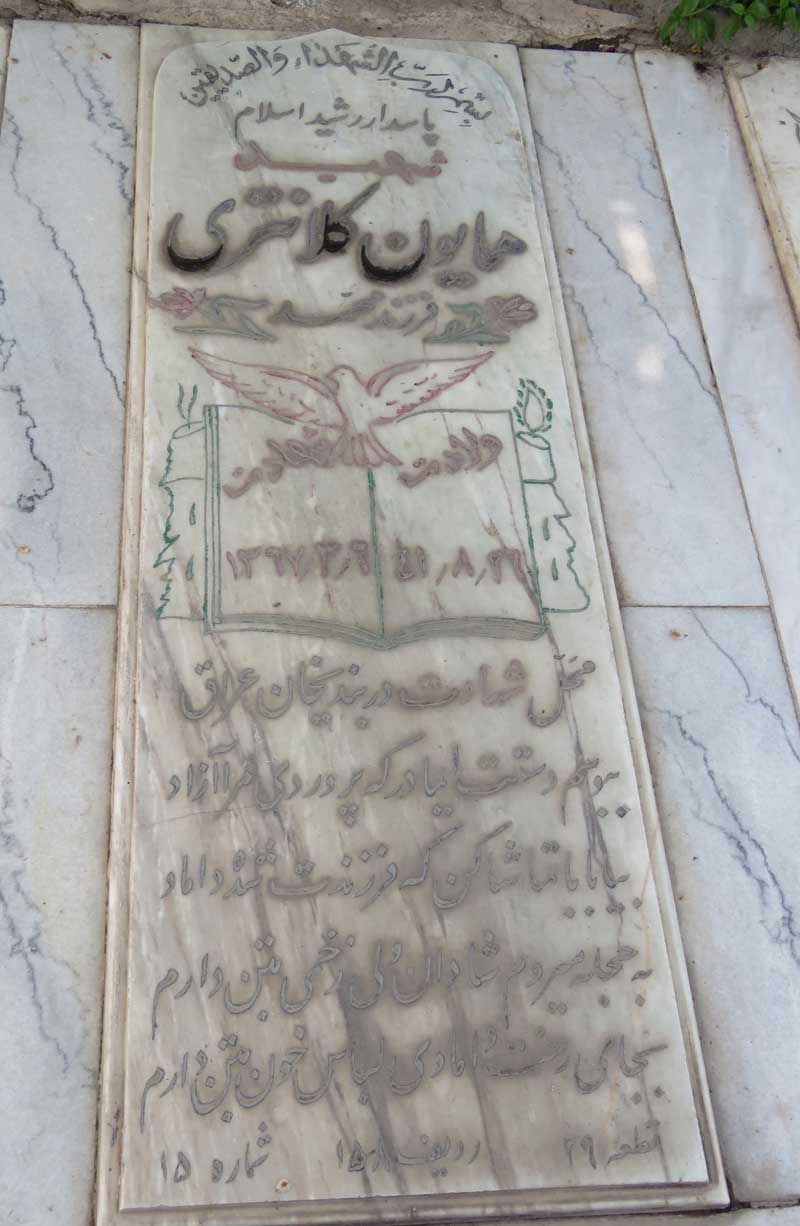 بسم رب الشهداء والصدیقین
پاسدار رشید اسلام
شهید
همایون کلانتری
فرزند محمد
ولادت شهادت
۴۱٫۸٫۲۶ ۱۳۶۷٫۳٫۹
محل شهادت دربندیخان عراق
ببوسم دستت ای مادر که پروردی مرا آزاد
بیا بابا تماشا کن که فرزندت شده داماد
به حجله میروم شادان ولی زخمی بتن دارم
بجای رخت دامادی لباس خون بتن دارم
قطعه ۲۹ ردیف ۱۵۸ شماره ۱۵